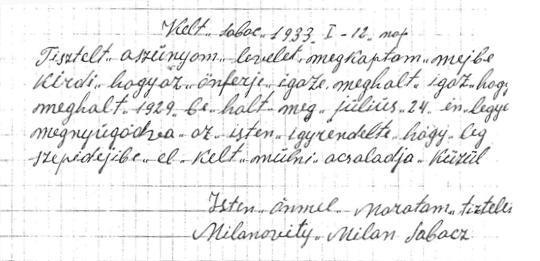 Kelt. Sabac. 1933. I - 12. nap
Tisztelt. aszűnyom. levelet. megkaptam. mejbe
Kirdi. hogyáz. önferje. igaze. meghalt. igaz. hogy
meghalt. 1929. be. halt. meg. július. 24. én. legye
megnyúgódva. az. isten. igyrendelte. hogy. leg
szepidejibe. el. Kelt. múlni. acsaladja. Küzül
Isten. önmel. Maratam. tisztelet
Milanovity. Milan Sabacz